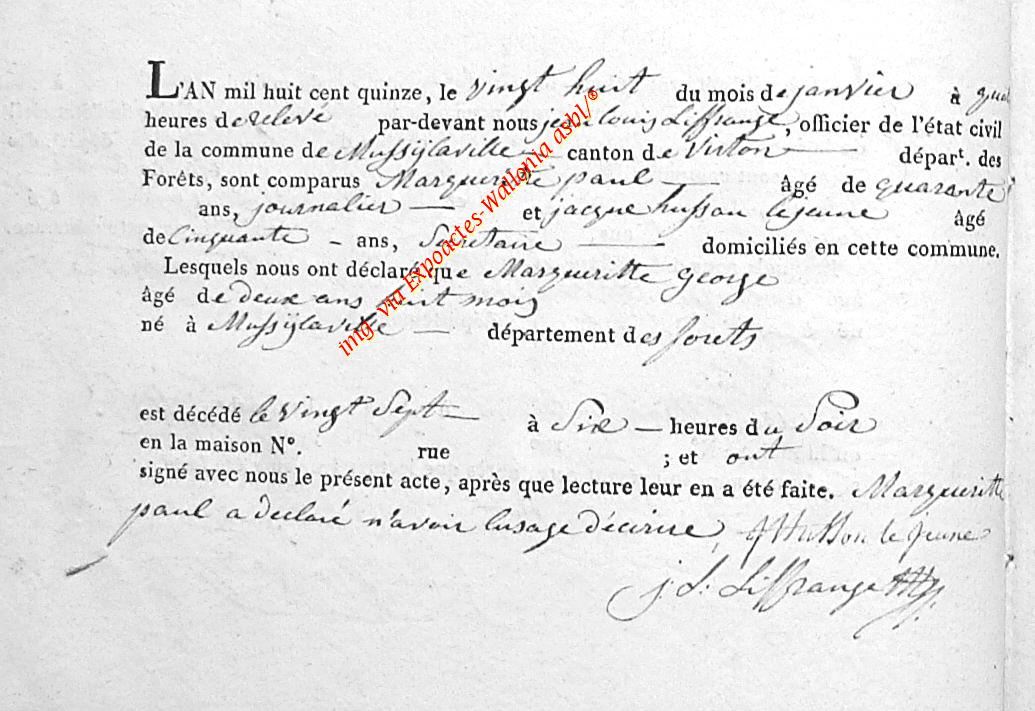 L'AN mil huit cent quinze, le vingt huit du mois de janvier à
heures de relevé par-devant nous jean louis Liffrange, officier de l'état civil
de la commune de Mussÿlaville canton de Virton dépar<sup>t</sup>. des
Forêts, sont comparus Margueritte paul âgé de quarante
ans, journalier et jacque husson lejeune âgé
de Cinquante - ans, Secretaire domiciliés en cette commune.
Lesquels nous ont déclaré que Margueritte george
âgé de deux ans huit mois
né à Mussÿlaville département des forets
est décédé le Vingt Sept à Six heures du Soir
en la maison N°. rue ; et ont
signé avec nous le présent acte, après que lecture leur en a été faite. Margueritte
paul a declaré n'avoir lusage décirire, JHusson le jeune
j. L. Liffrange
img- via Expoactes-Wallonia asbl/©